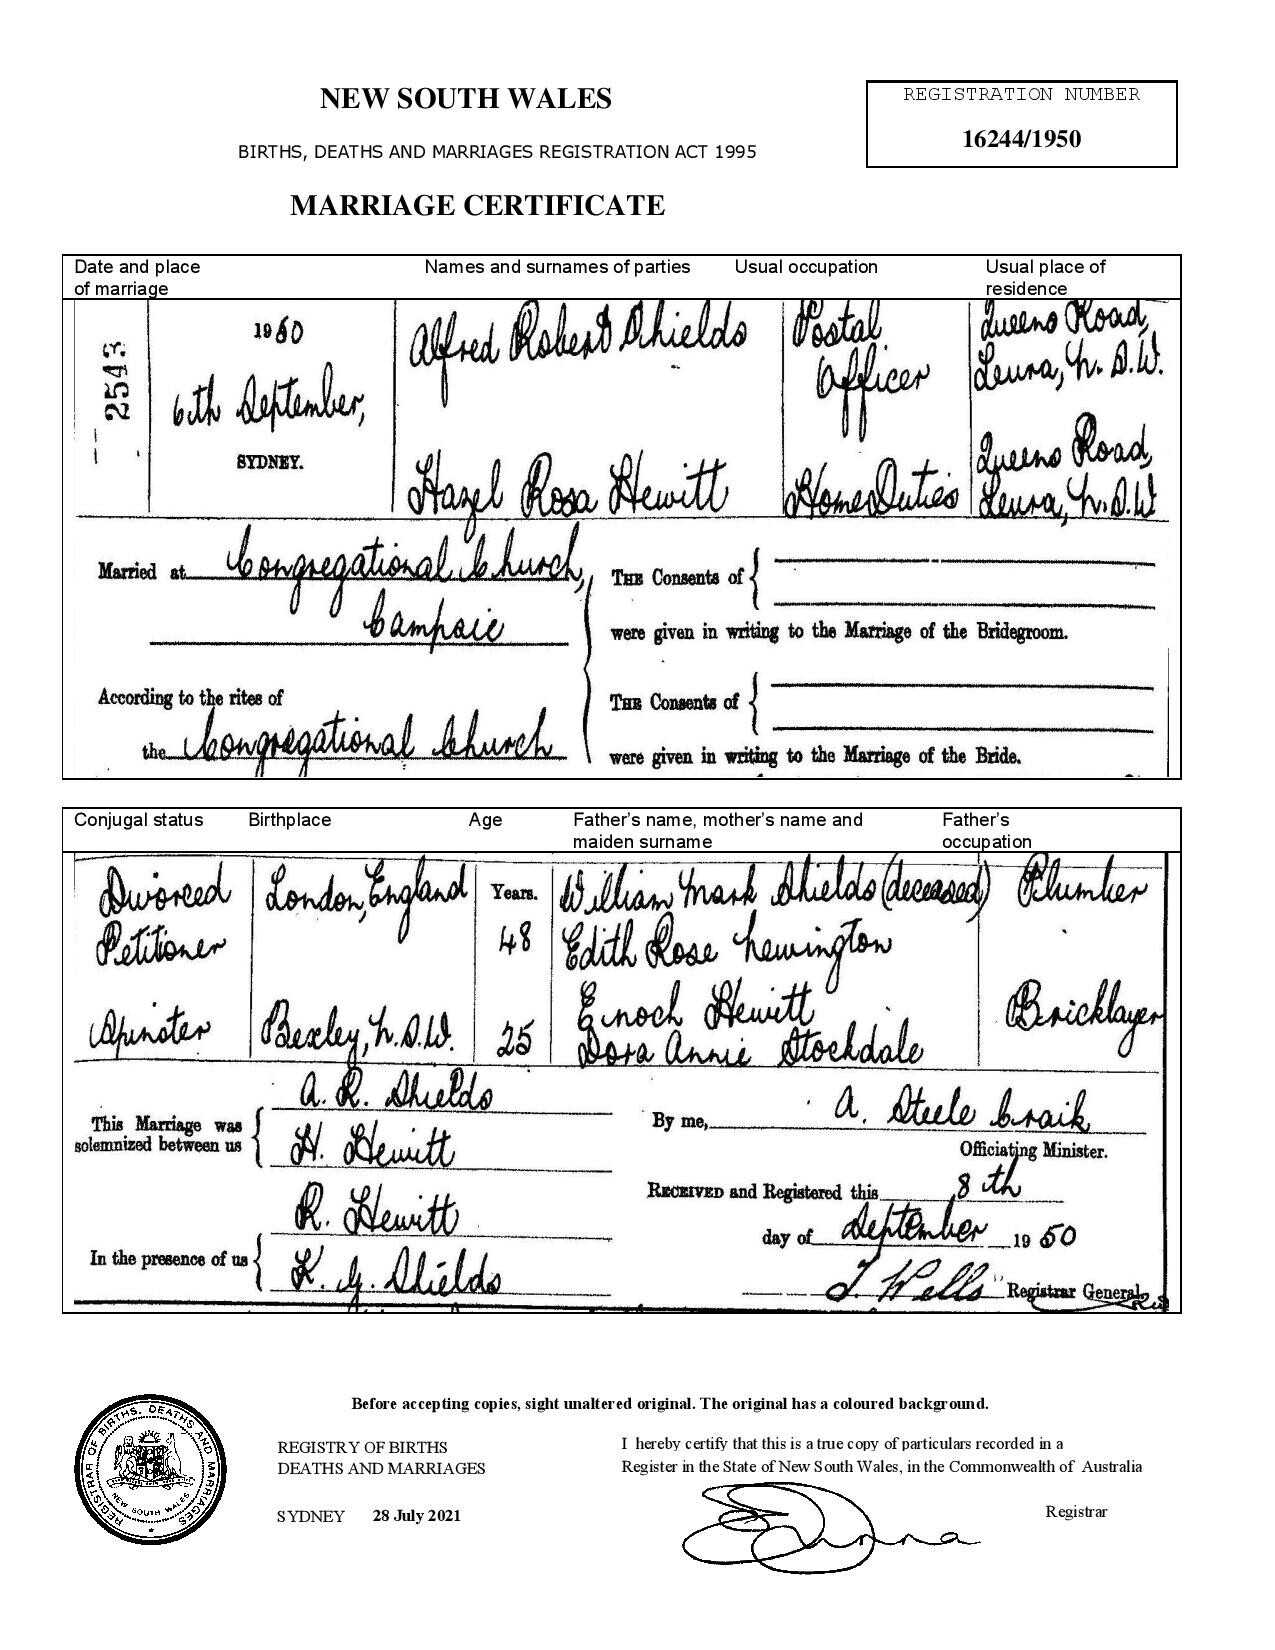 NEW SOUTH WALES
REGISTRATION NUMBER
16244/1950
BIRTHS, DEATHS AND MARRIAGES REGISTRATION ACT 1995
MARRIAGE CERTIFICATE
Date and place of marriage
Names and surnames of parties
Usual occupation
Usual place of residence
2543
1950
6th September,
SYDNEY.
Alfred Robert Shields
Postal
Officer
Queens Road,
Leura, N.S.W.
Hazel Rosa Hewitt
Home Duties
Queens Road,
Leura, N.S.W
Married at Congregational Church,
Campsie
According to the rites of
the Congregational Church
THE Consents of
were given in writing to the Marriage of the Bridegroom.
THE Consents of
were given in writing to the Marriage of the Bride.
Conjugal status
Birthplace
Age
Father's name, mother's name and
maiden surname
Father's
occupation
Divorced
Petitioner
London, England
Years.
48
William Mark Shields (deceased)
Edith Rose Newington
Plumber
Spinster
Bexley, N.S.W.
25
Enoch Hewitt
Dora Annie Stockdale
Bricklayer
This Marriage was
solemnized between us
A. R. Shields
H. Hewitt
In the presence of us
R. Hewitt
K. G. Shields
By me, A. Steele Craik
Officiating Minister.
RECEIVED and Registered this 8th
day of September 1950
J. Wells Registrar General.
Before accepting copies, sight unaltered original. The original has a coloured background.
REGISTRAR OF BIRTHS, DEATHS AND MARRIAGES
NEW SOUTH WALES
REGISTRY OF BIRTHS
DEATHS AND MARRIAGES
SYDNEY 28 July 2021
I hereby certify that this is a true copy of particulars recorded in a
Register in the State of New South Wales, in the Commonwealth of Australia
Registrar